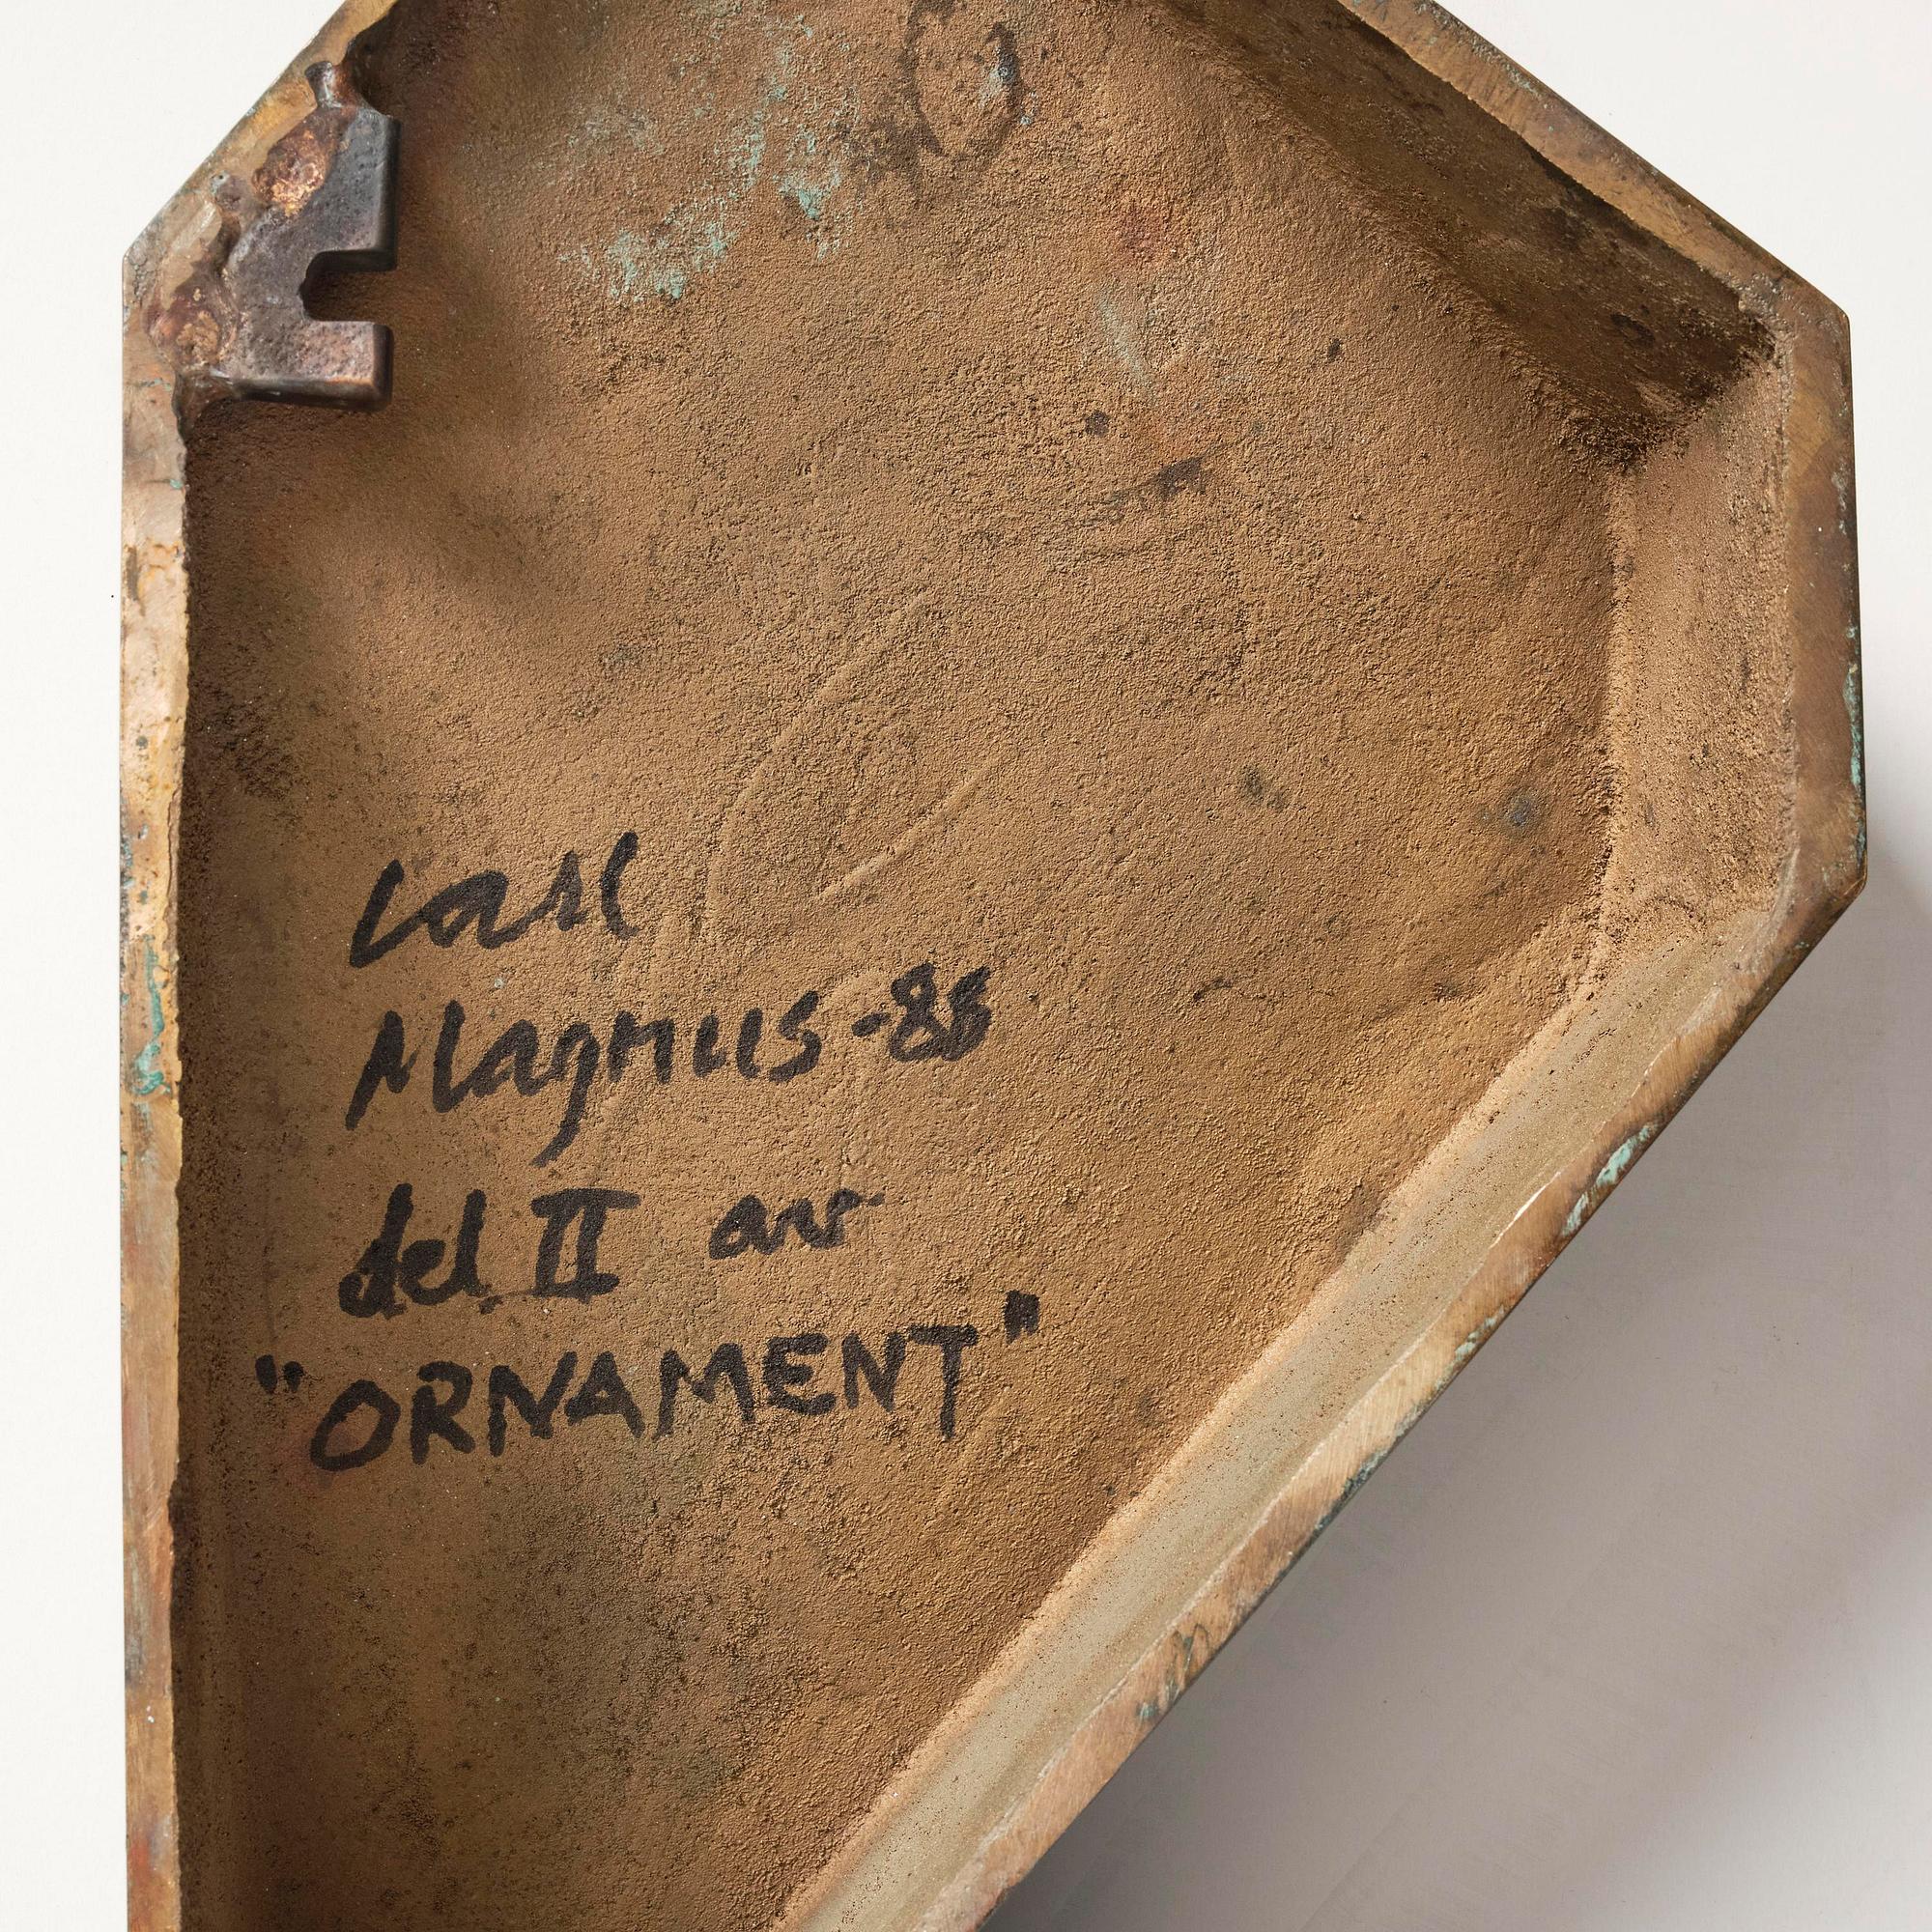 Carl
Magnus -88
del II av
"ORNAMENT"